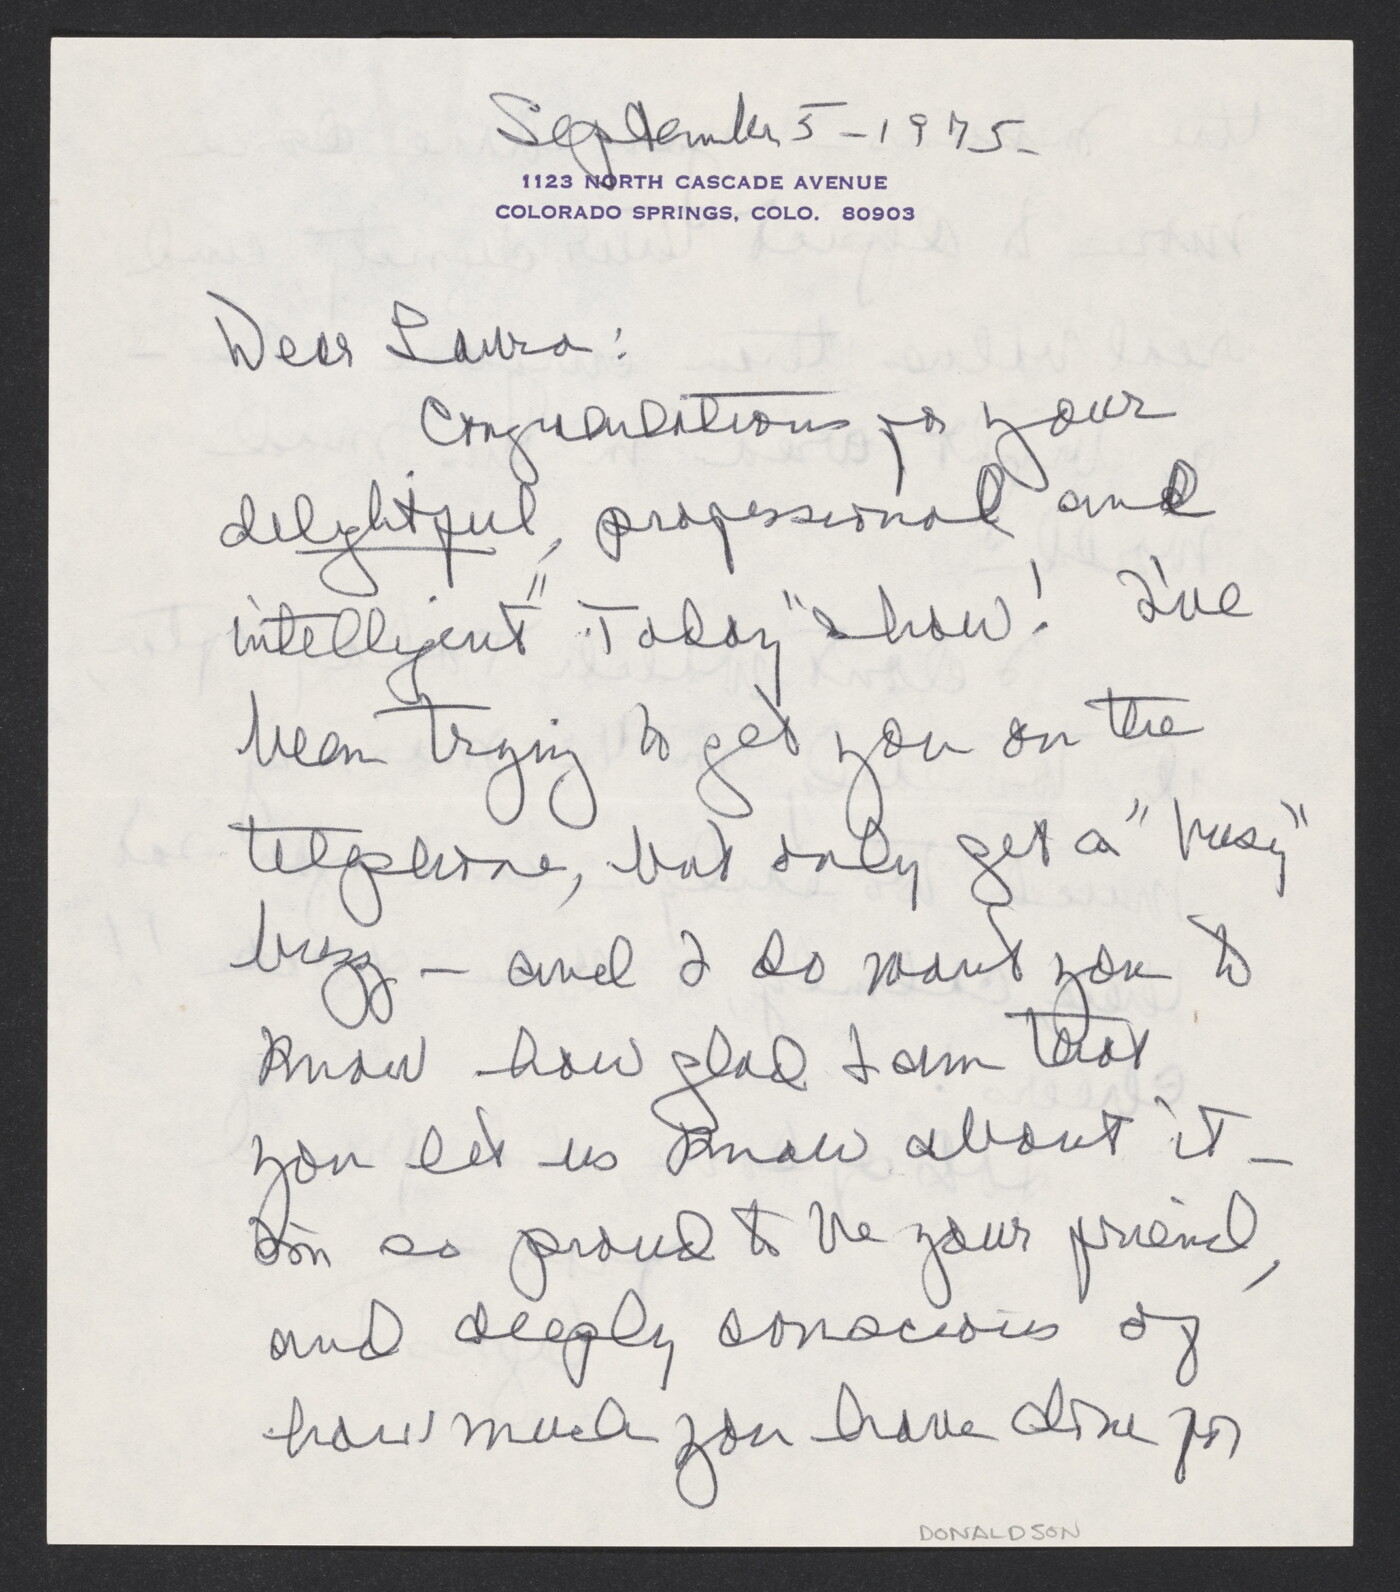 September 5-1975-
1123 NORTH CASCADE AVENUE
COLORADO SPRINGS, COLO. 80903
Dear Laura:
Congratulations for your
delightful, professional and
intelligent "Today" show! I've
been trying to get you on the
telephone, but only get a "busy"
buzz — and I do want you to
know how glad I am that
you let us know about it —
I'm so proud to be your friend,
and deeply conscious of
how much you have done for
DONALDSON